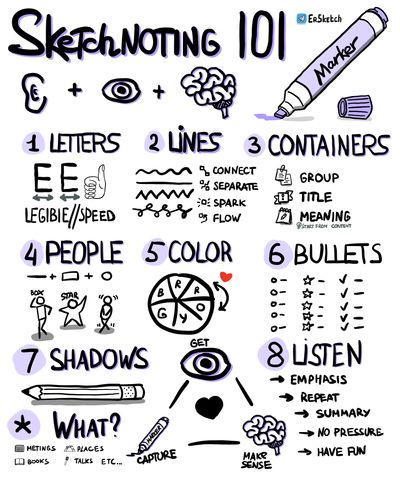 SKETCHNOTING 101
ErSketch
Marker
1 LETTERS
EE
LEGIBIE//SPEED
2 LINES
CONNECT
SEPARATE
SPARK
FLOW
3 CONTAINERS
GROUP
TITLE
MEANING
START FROM CONTENT
4 PEOPLE
BOX
STAR
5 COLOR
B R R O Y G
6 BULLETS
7 SHADOWS
GET
CAPTURE
MARKER
MAKE
SENSE
8 LISTEN
EMPHASIS
REPEAT
SUMMARY
NO PRESSURE
HAVE FUN
* WHAT?
METINGS
PLACES
BOOKS
TALKS ETC...